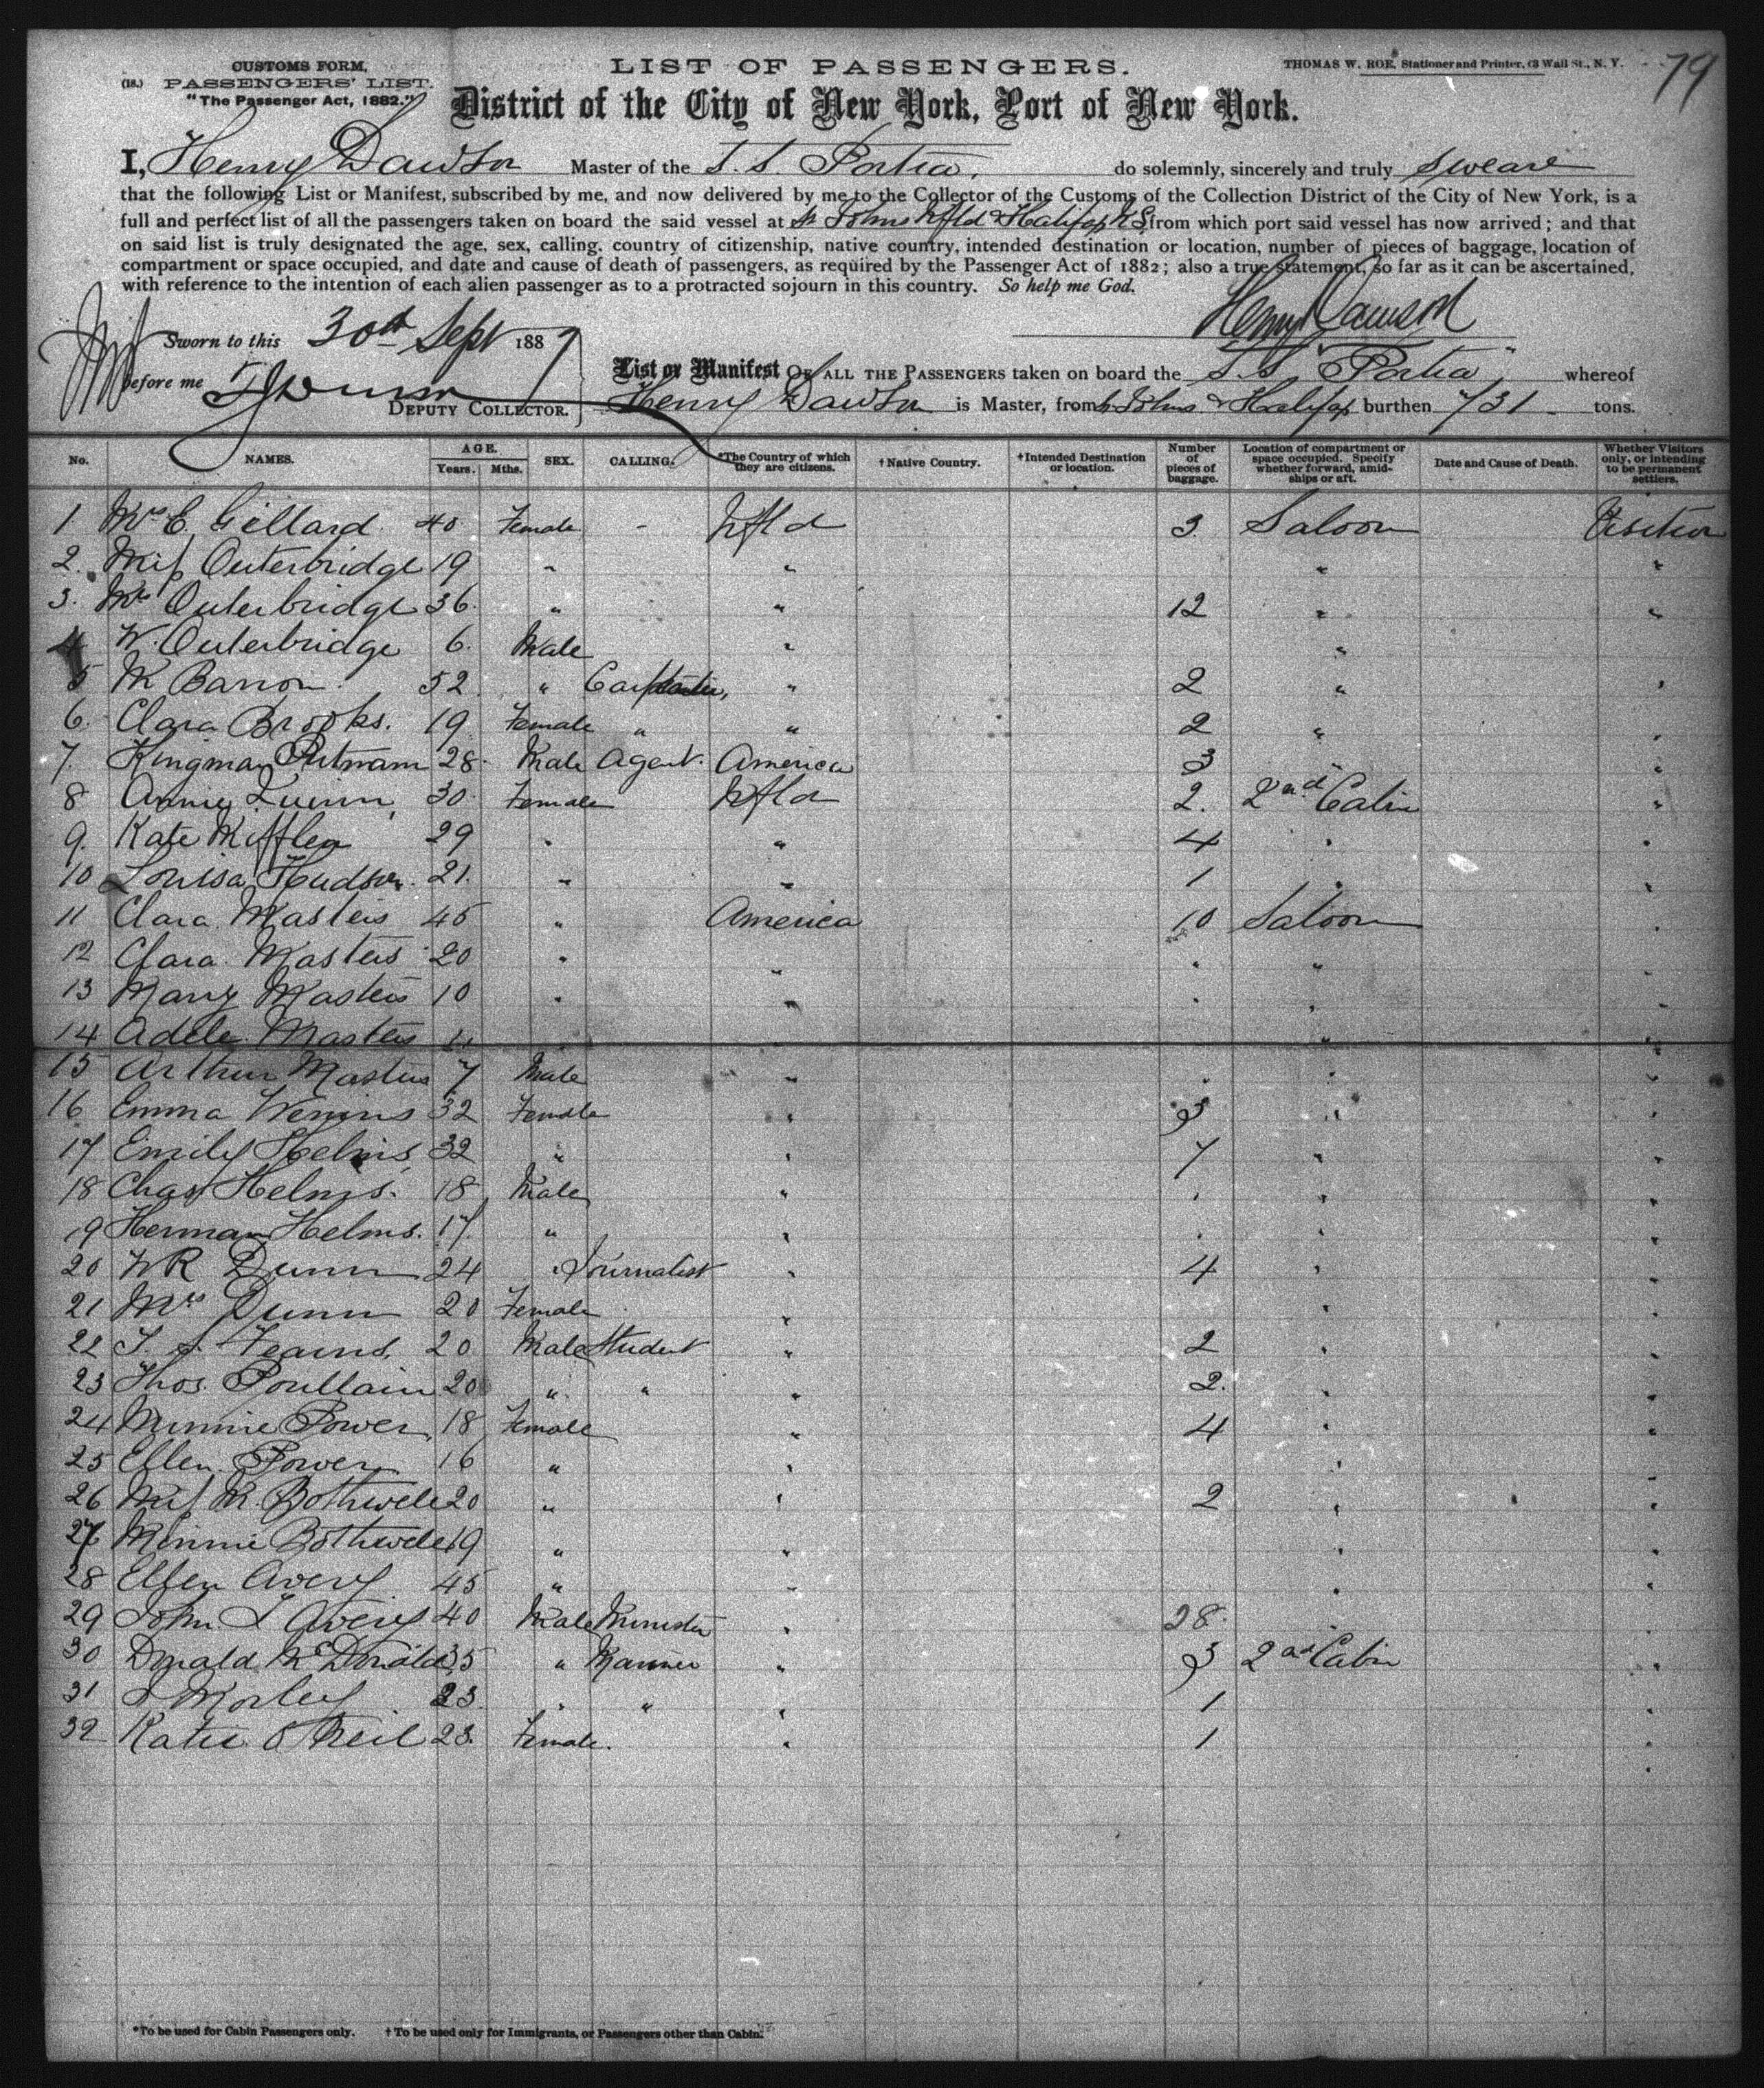 CUSTOMS FORM,
(18.) PASSENGERS' LIST.
"The Passenger Act, 1882."
LIST OF PASSENGERS.
THOMAS W. ROE, Stationer and Printer, 63 Wall St., N. Y.
79
District of the City of New York, Port of New York.
I, Henry Dawson Master of the S. S. Portia, do solemnly, sincerely and truly swear
that the following List or Manifest, subscribed by me, and now delivered by me to the Collector of the Customs of the Collection District of the City of New York, is a
full and perfect list of all the passengers taken on board the said vessel at St Johns Nfld & Halifax N S from which port said vessel has now arrived; and that
on said list is truly designated the age, sex, calling, country of citizenship, native country, intended destination or location, number of pieces of baggage, location of
compartment or space occupied, and date and cause of death of passengers, as required by the Passenger Act of 1882; also a true statement, so far as it can be ascertained,
with reference to the intention of each alien passenger as to a protracted sojourn in this country. So help me God.
Henry Dawson
Sworn to this 30th Sept 1887
before me
DEPUTY COLLECTOR.
List or Manifest OF ALL THE PASSENGERS taken on board the S. S. "Portia" whereof
Henry Dawson is Master, from St Johns & Halifax burthen 731 tons.
No. NAMES. AGE. Years. Mths. SEX. CALLING. *The Country of which they are citizens. †Native Country. †Intended Destination or location. Number of pieces of baggage. Location of compartment or space occupied. Specify whether forward, amidships or aft. Date and Cause of Death. Whether Visitors only, or intending to be permanent settlers.
1 Mrs E. Gillard 40 Female - Nfld 3 Saloon Visitor
2. Miss Outerbridge 19 " " " "
3. Mrs Outerbridge 36 " " 12 " "
4 W. Outerbridge 6 Male " "
5 M Barron 52 " Carpenter, " 2 " "
6. Clara Brooks. 19 Female " " 2 " "
7. Kingman Putnam 28 Male Agent America 3 " "
8 Annie Quinn 30 Female Nfld 2. 2nd Cabin "
9. Kate Kifflen 29 " " 4 " "
10 Louisa Hudson 21. " " 1 " "
11 Clara Masters 45 " America 10 Saloon "
12 Clara Masters 20 " " " " "
13 Mary Masters 10 " " " " "
14 Adele Masters " "
15 Arthur Masters 7 Male " " " "
16 Emma 32 Female " 3 " "
17 Emily Helms 32 " " 7 " "
18 Chas Helms. 18 Male " " " "
19 Herman Helms. 17 " " " " "
20 W R Dunn 24 " Journalist " 4 " "
21 Mrs Dunn 20 Female " " "
22 20 Male Student " 2 " "
23 Thos. Poullain 20 " " " 2. " "
24 Minnie Power 18 Female " 4 " "
25 Ellen Power 16 " " " "
26 Miss M. Bothwell 20 " " 2 " "
27 Minnie Bothwell 19 " " " "
28 Ellen Avery 45 " " " "
29 John L Avery 40 Male Minister " 28 " "
30 Donald McDonald 35 " Mariner " 3 2nd Cabin "
31 Morley 23 " " " 1 "
32 Katie O Neil 23. Female. " 1 "
*To be used for Cabin Passengers only. †To be used only for Immigrants, or Passengers other than Cabin.